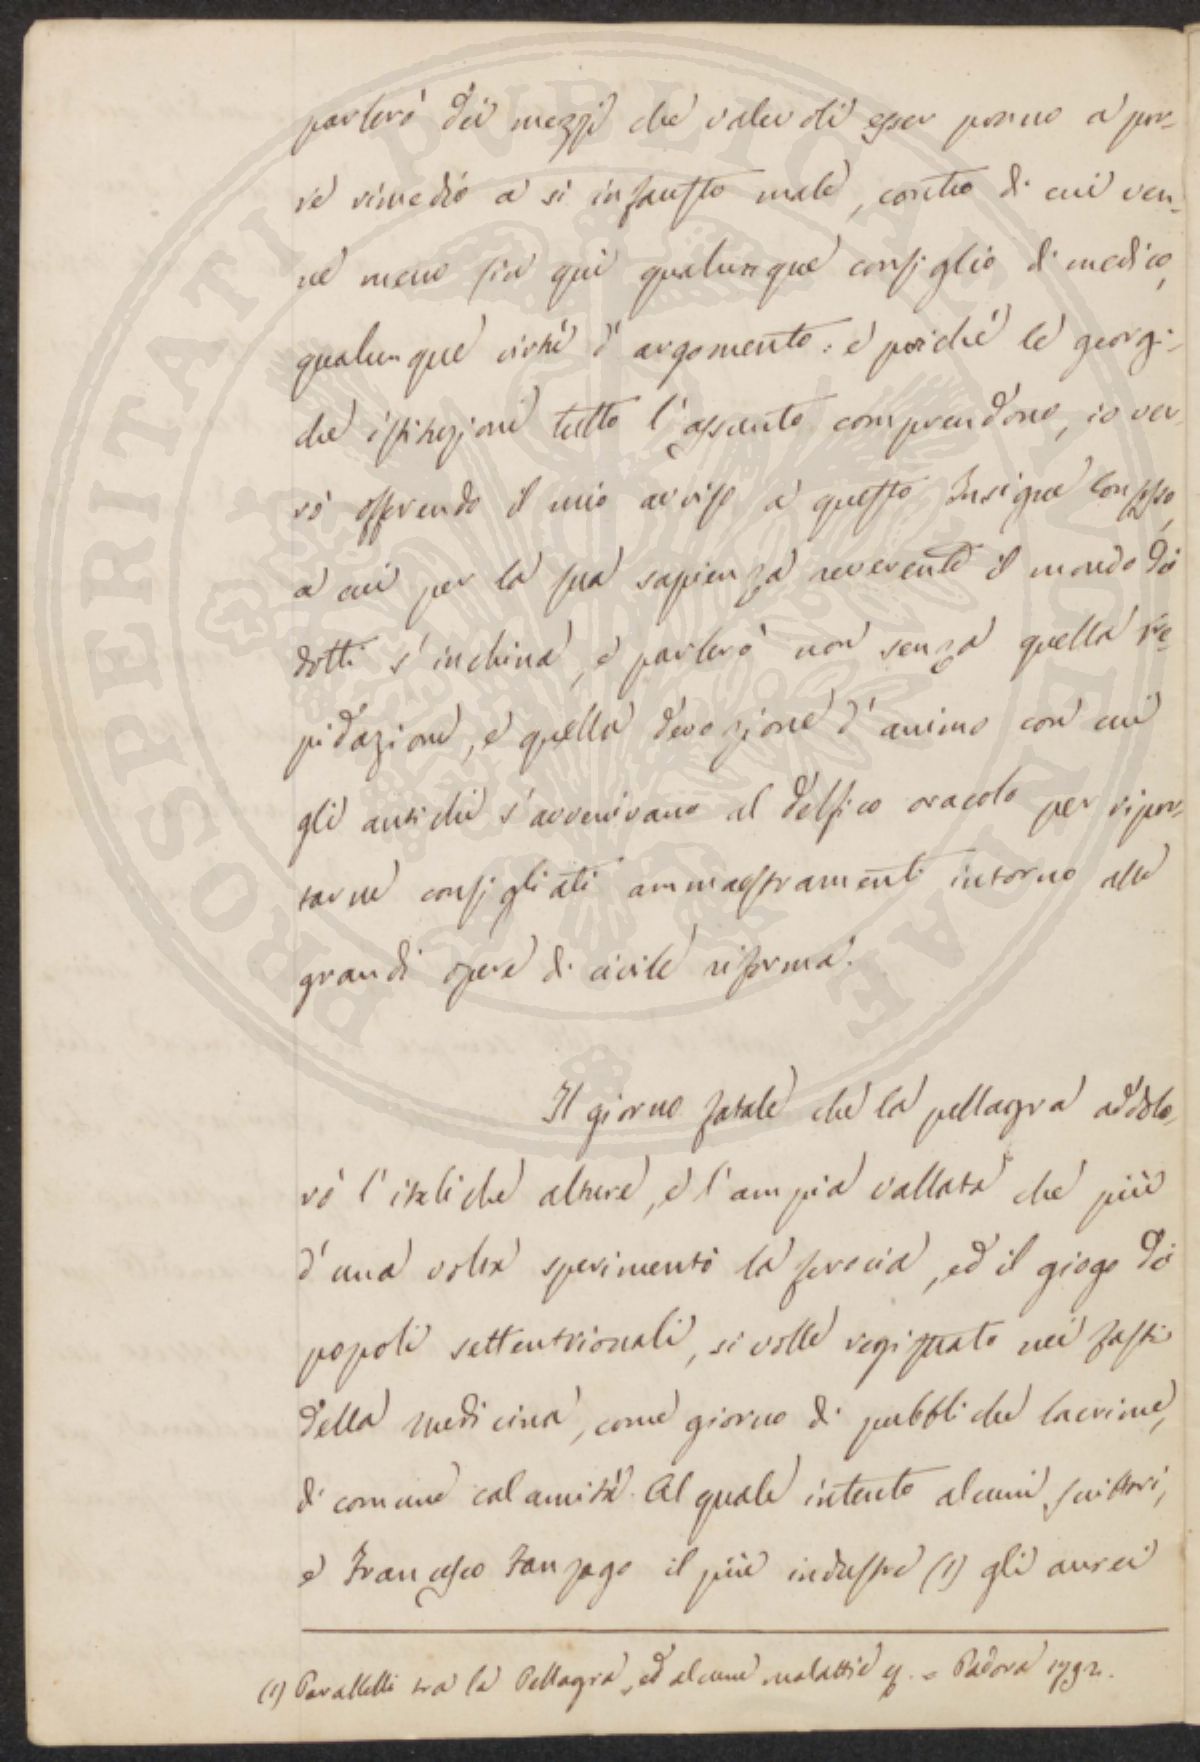 parlerò dei mezzi che valevoli esser ponno a por-
re rimedio a sì infausto male, contro di cui ven-
ne meno fin qui qualunque consiglio di medico,
qualunque virtù d'argomento: e poichè le georgi-
che istituzioni tutto l'assunto comprendono, io ver-
rò offerendo il mio avviso a questo Insigne Consesso,
a cui per la sua sapienza reverente il mondo dei
dotti s'inchina, e parlerò non senza quella tre-
pidazione, e quella devozione d'animo con cui
gli antichi s'avvenivano al delfico oracolo per ripor-
tarne consigliati ammaestramenti intorno alle
grandi opere di civile riforma.
Il giorno fatale che la pellagra addolo-
rò l'italiche alture, e l'ampia vallata che più
d'una volta sperimentò la ferocia, ed il giogo dei
popoli settentrionali, si volle registrato nei fasti
della medicina, come giorno di pubbliche lacrime,
di comune calamità. Al quale intento alcuni scrittori,
e Francesco Fanzago il più industre (1) gli aurei
(1) Paralleli tra la Pellagra, ed alcune malattie = Padova 1792.
PROSPERITATI PUBLICAE AUGENDAE